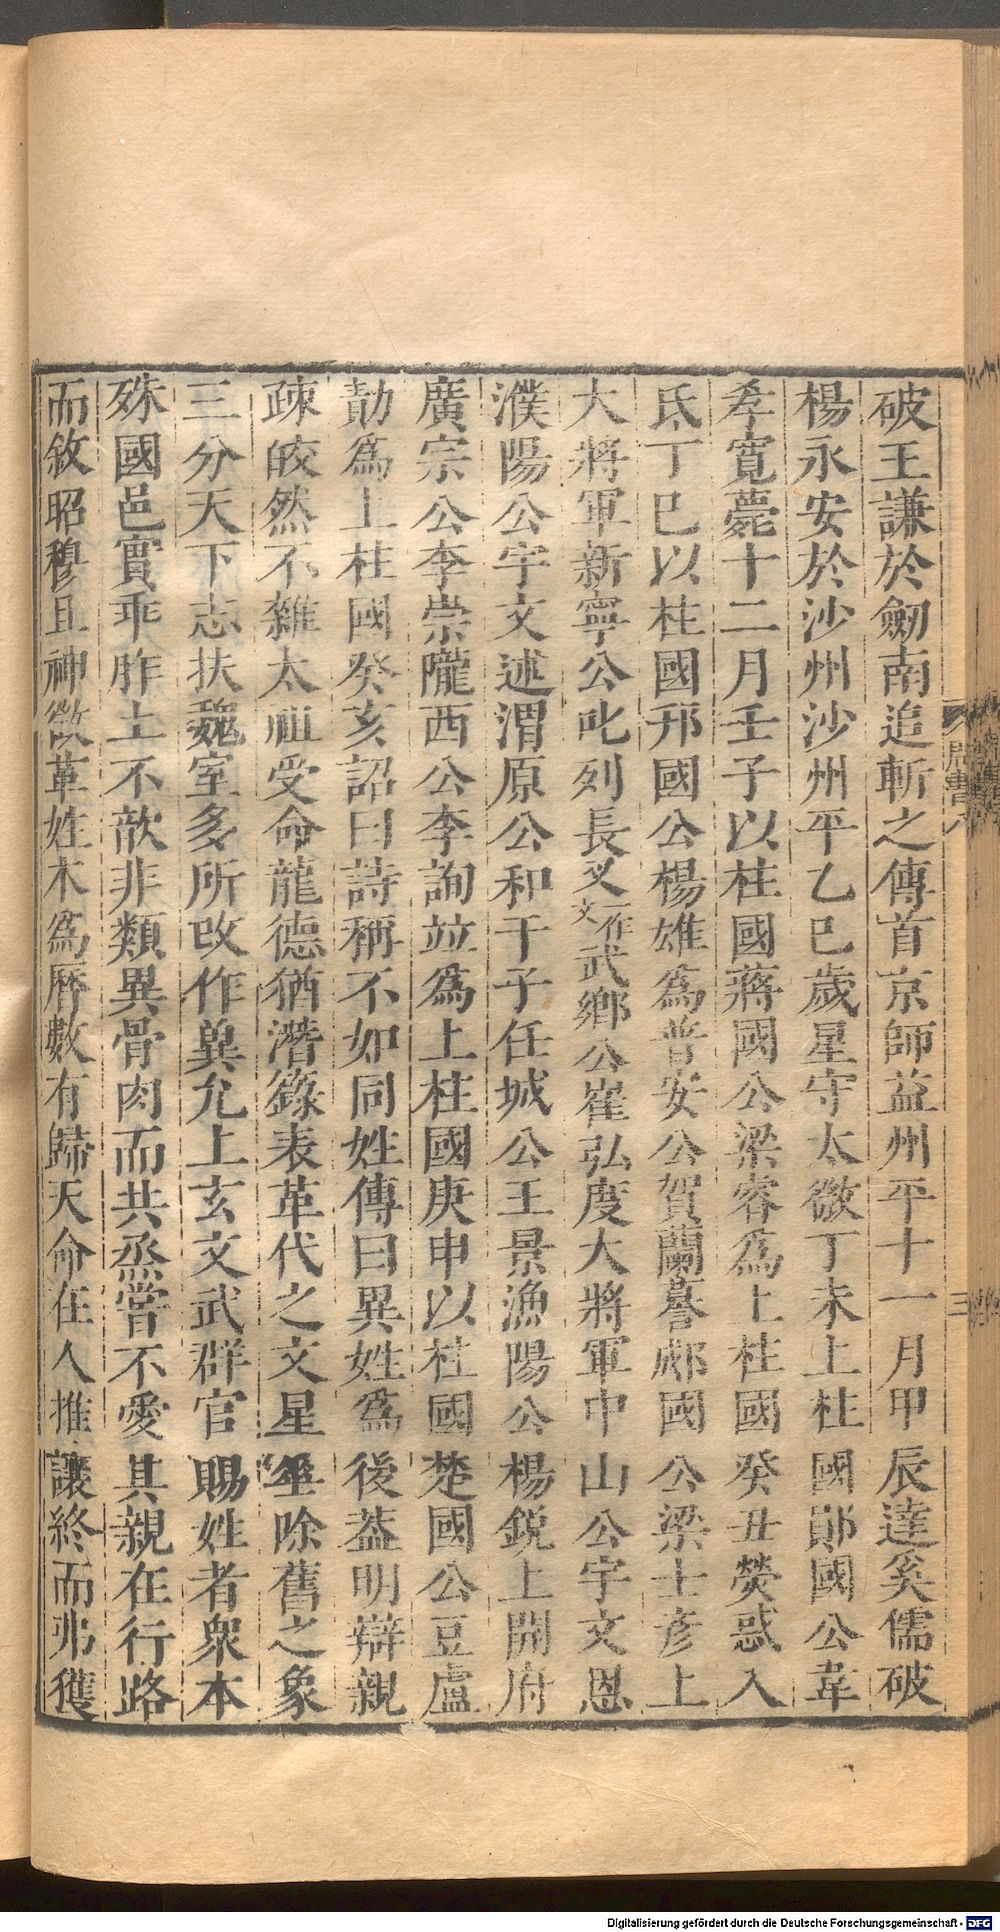 破王謙於劒南追斬之傳首京師益州平十一月甲辰達奚儒破
楊永安於沙州沙州平乙巳歲星守太微丁未上柱國鄖國公韋
孝寬薨十二月壬子以柱國蔣國公梁睿為上柱國癸丑熒惑入
氐丁巳以柱國邘國公楊雄為普安公賀蘭謩郕國公梁士彥上
大將軍新寧公叱列長叉一作文武鄉公崔弘度大將軍中山公宇文恩
濮陽公宇文述渭原公和干子任城公王景漁陽公楊銳上開府
廣宗公李崇隴西公李詢竝為上柱國庚申以柱國楚國公豆盧
勣為上柱國癸亥詔曰詩稱不如同姓傳曰異姓為後葢明辯親
疎皎然不雜太祖受命龍德猶潛籙表革代之文星垂除舊之象
三分天下志扶魏室多所改作冀允上玄文武群官賜姓者衆本
殊國邑實乖胙土不歆非類異骨肉而共烝嘗不愛其親在行路
而敘昭穆且神徵革姓本為曆數有歸天命在人推讓終而弗獲
周書八
三
Digitalisierung gefördert durch die Deutsche Forschungsgemeinschaft - DFG